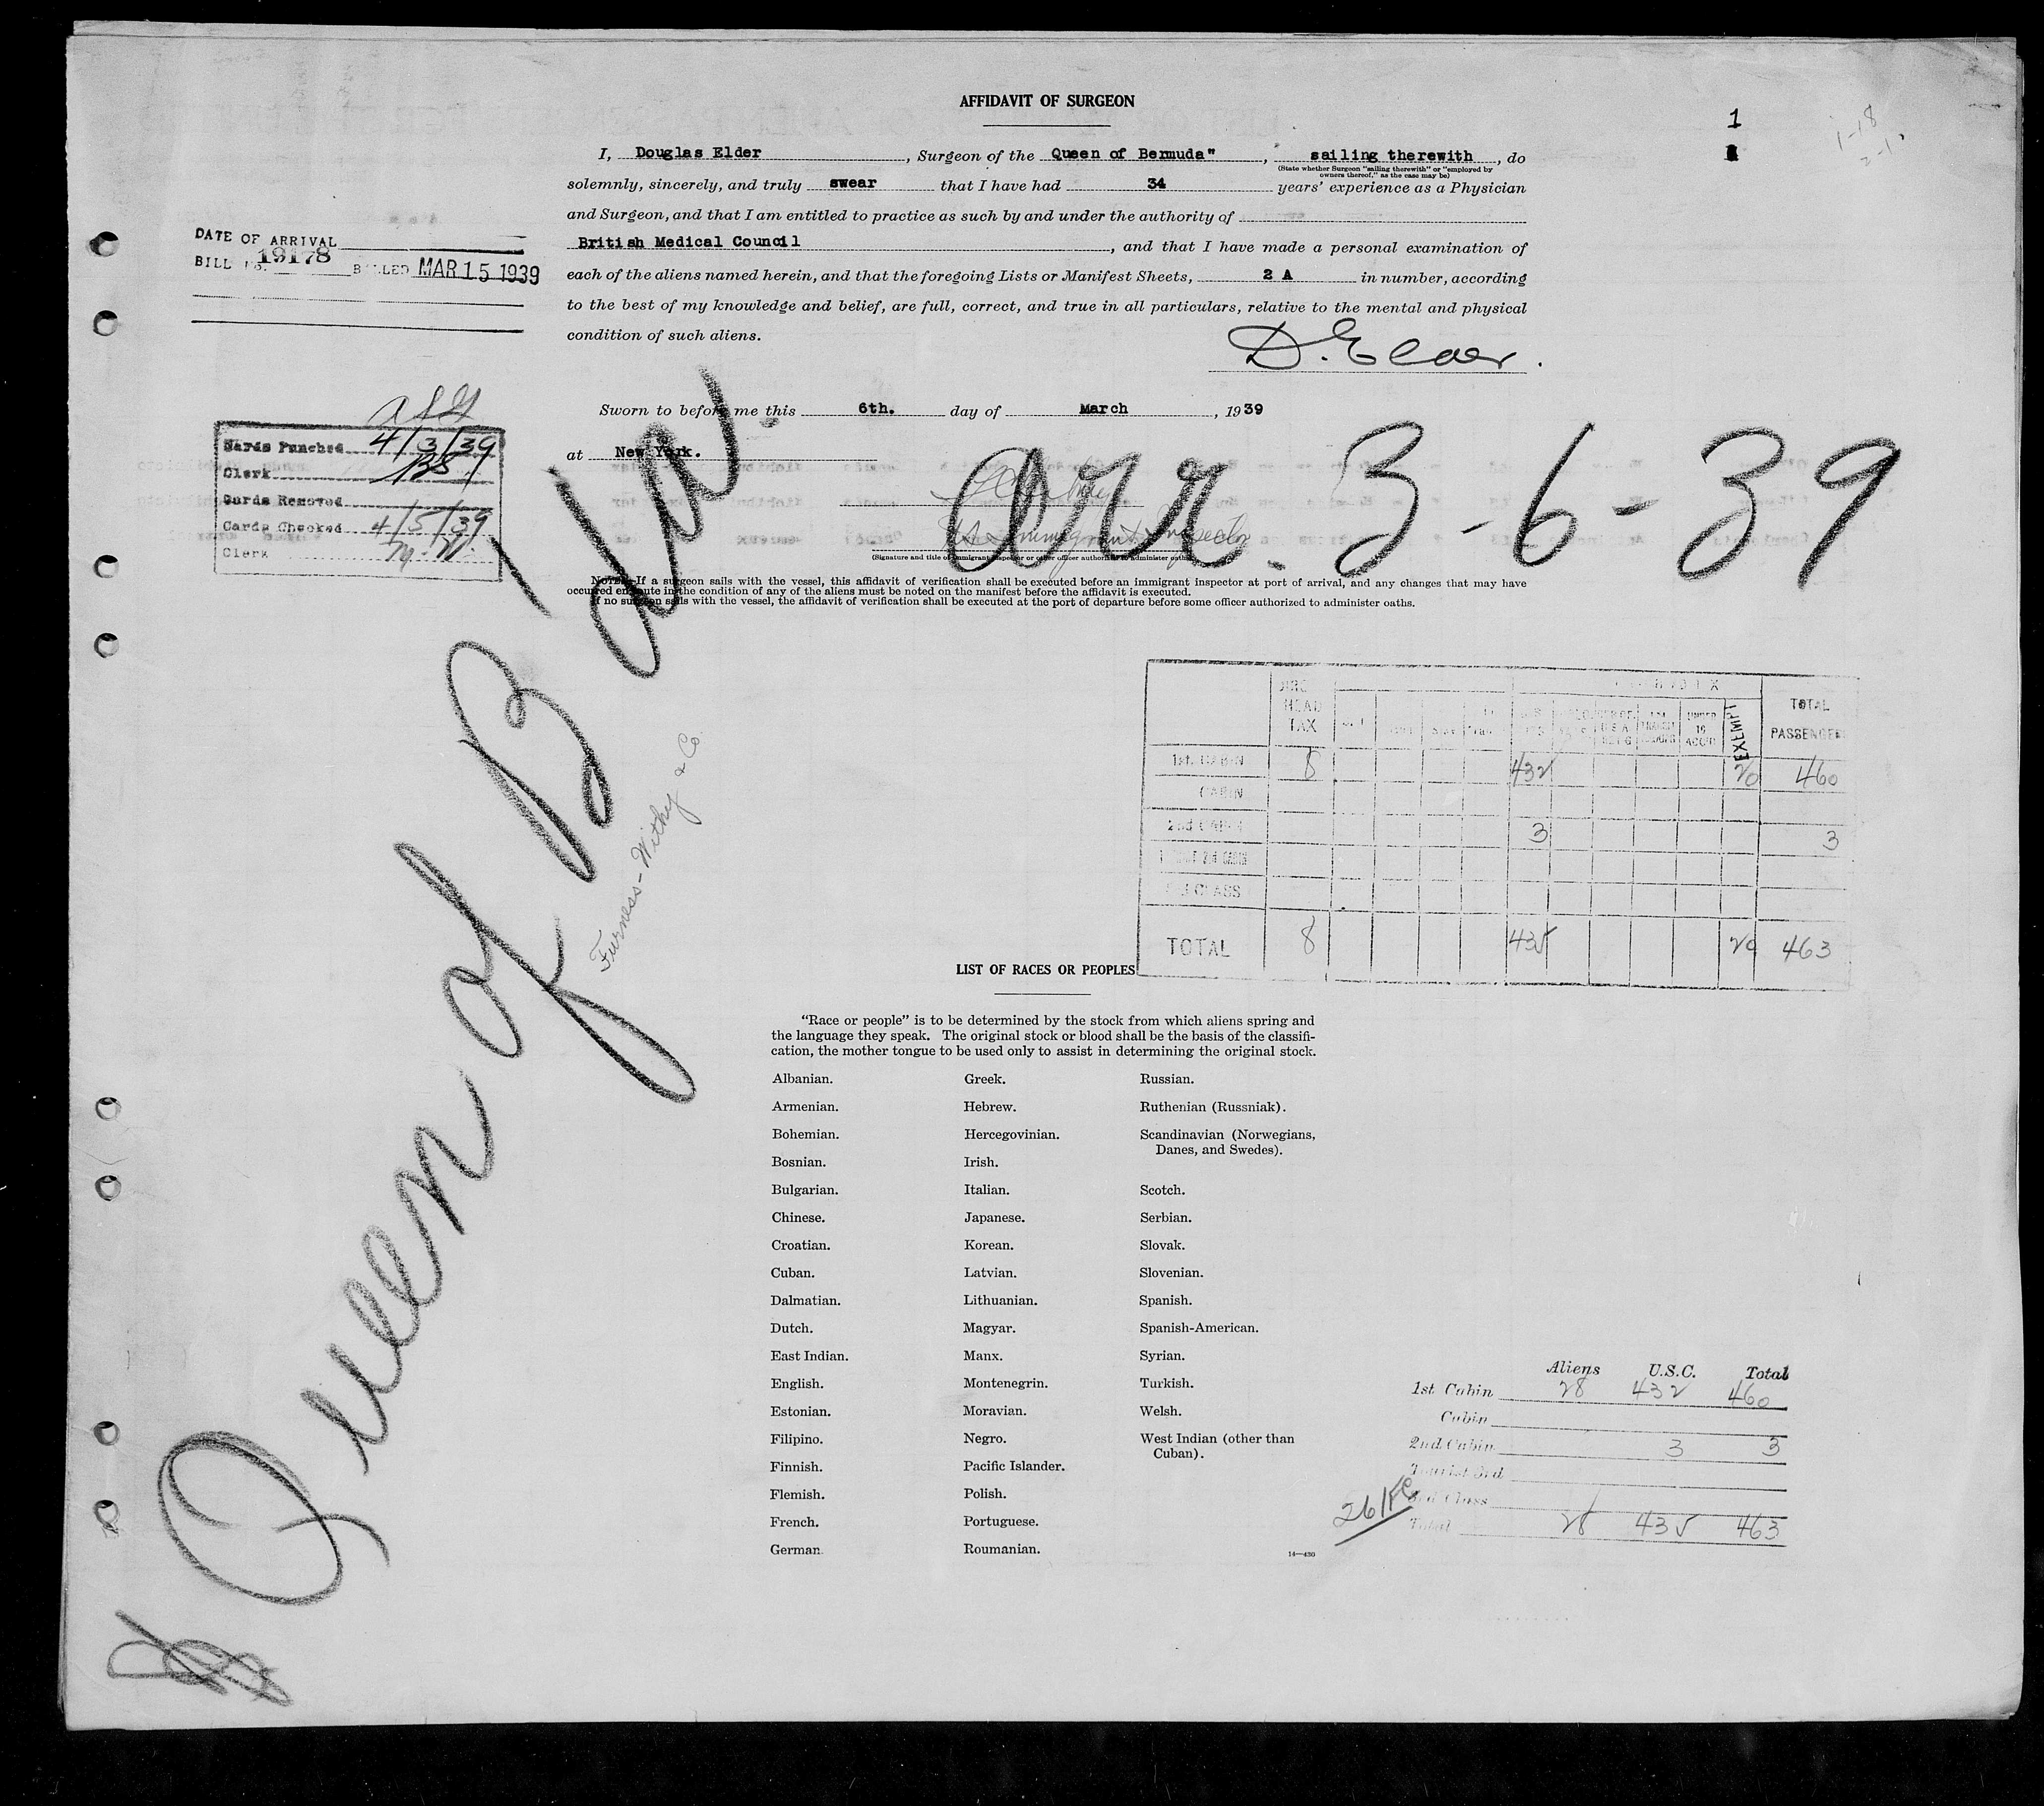 AFFIDAVIT OF SURGEON
1
1-18
2-1
I, Douglas Elder, Surgeon of the Queen of Bermuda", sailing therewith, do
(State whether Surgeon "sailing therewith" or "employed by
owners thereof," as the case may be)
solemnly, sincerely, and truly swear that I have had 34 years' experience as a Physician
and Surgeon, and that I am entitled to practice as such by and under the authority of
British Medical Council, and that I have made a personal examination of
each of the aliens named herein, and that the foregoing Lists or Manifest Sheets, 2 A in number, according
to the best of my knowledge and belief, are full, correct, and true in all particulars, relative to the mental and physical
condition of such aliens.
D. Elder.
DATE OF ARRIVAL
BILL NO. 19178 BILLED MAR 15 1939
Sworn to before me this 6th. day of March, 1939
at New York.
Cards Punched 4/3/39
Clerk BS
Cards Removed
Cards Checked 4/5/39
Clerk M.W.
U.S. Immigrant Inspector
(Signature and title of immigrant inspector or other officer authorized to administer oaths)
arr. 3-6-39
NOTE.—If a surgeon sails with the vessel, this affidavit of verification shall be executed before an immigrant inspector at port of arrival, and any changes that may have
occurred en route in the condition of any of the aliens must be noted on the manifest before the affidavit is executed.
If no surgeon sails with the vessel, the affidavit of verification shall be executed at the port of departure before some officer authorized to administer oaths.
Queen of B'da.
Furness-Withy & Co.
HEAD TAX
UNDER 16 ACC'D
EXEMPT
TOTAL PASSENGERS
1st. CABIN 8 432 20 460
CABIN
2nd CABIN 3 3
3rd CLASS
TOTAL 8 435 20 463
LIST OF RACES OR PEOPLES
"Race or people" is to be determined by the stock from which aliens spring and
the language they speak. The original stock or blood shall be the basis of the classifi-
cation, the mother tongue to be used only to assist in determining the original stock.
Albanian.
Armenian.
Bohemian.
Bosnian.
Bulgarian.
Chinese.
Croatian.
Cuban.
Dalmatian.
Dutch.
East Indian.
English.
Estonian.
Filipino.
Finnish.
Flemish.
French.
German.
Greek.
Hebrew.
Hercegovinian.
Irish.
Italian.
Japanese.
Korean.
Latvian.
Lithuanian.
Magyar.
Manx.
Montenegrin.
Moravian.
Negro.
Pacific Islander.
Polish.
Portuguese.
Roumanian.
Russian.
Ruthenian (Russniak).
Scandinavian (Norwegians,
Danes, and Swedes).
Scotch.
Serbian.
Slovak.
Slovenian.
Spanish.
Spanish-American.
Syrian.
Turkish.
Welsh.
West Indian (other than
Cuban).
14—430
Aliens U.S.C. Total
1st Cabin 28 432 460
Cabin
2nd Cabin 3 3
Tourist 3rd
3rd Class
Total 28 435 463